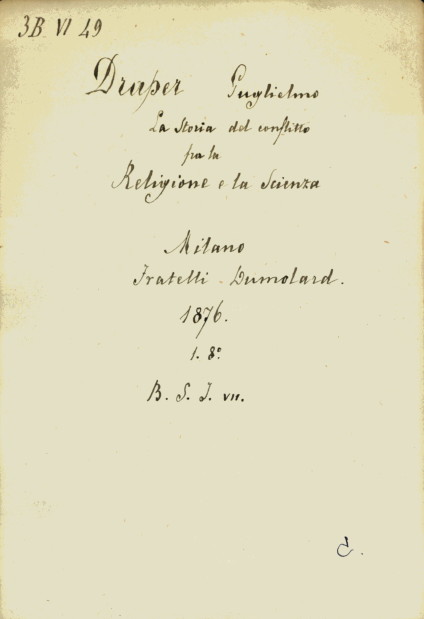 3B VI 49
Draper Guglielmo
La Storia del conflitto
fra la
Religione e la Scienza
Milano
Fratelli Dumolard.
1876.
1. 8°.
B. S. I. VII.